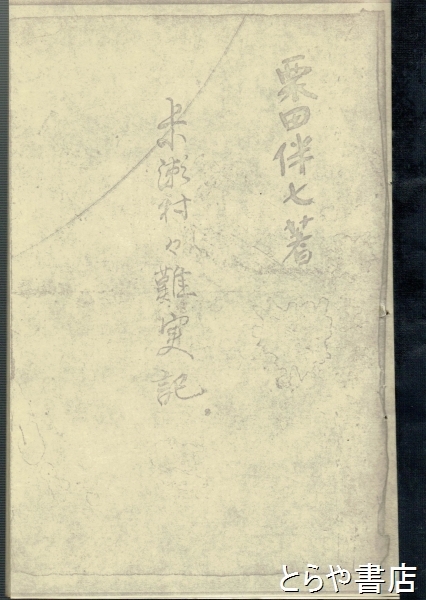 栗田伴七著
米瀬村々難実記
とらや書店